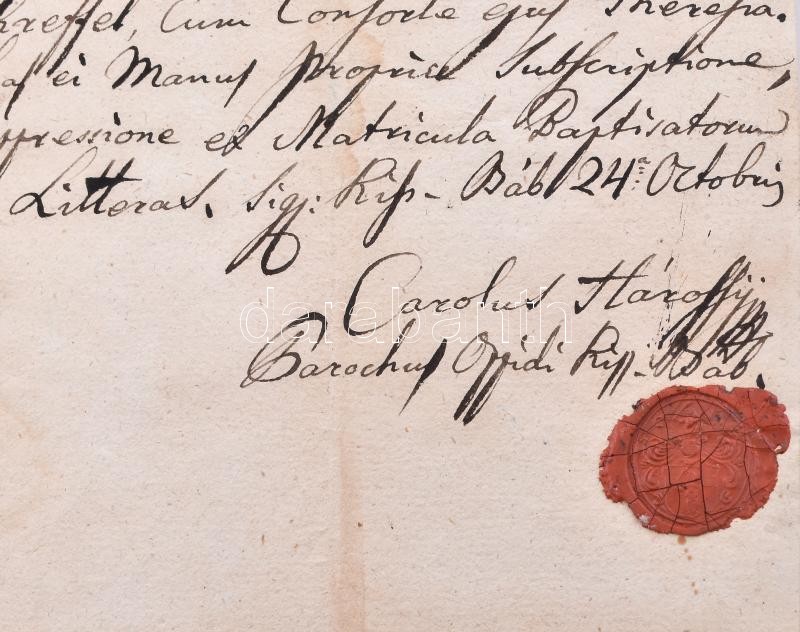 Cum Consorte ejus Theresa.
ei Manus Propriae Subscriptione,
et Matricula Baptisatorum
Litteras. Sig: Kiss - Báb 24a Octobris
Carolus Hárossÿ
Parochus Oppidi Kiss - Báb.
darabanth